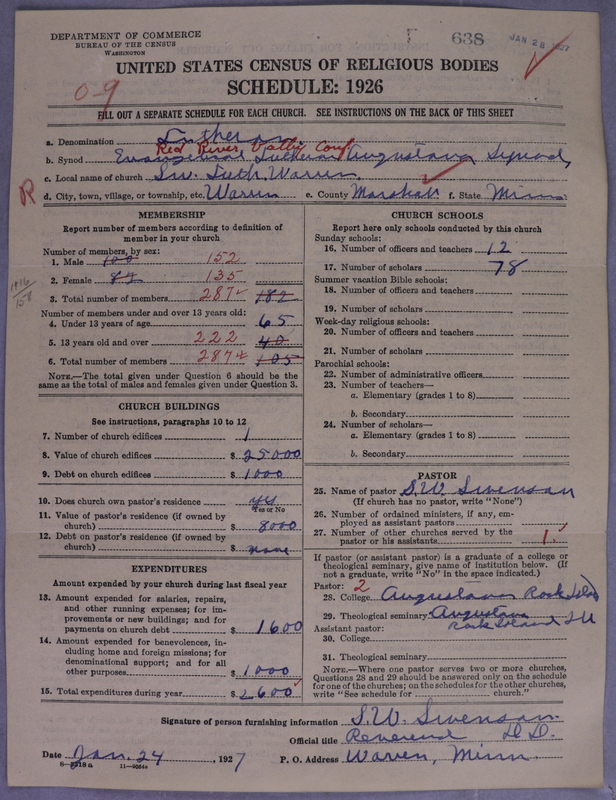 DEPARTMENT OF COMMERCE
BUREAU OF THE CENSUS
WASHINGTON
638
JAN 28 1927
UNITED STATES CENSUS OF RELIGIOUS BODIES
SCHEDULE: 1926
0-9
FILL OUT A SEPARATE SCHEDULE FOR EACH CHURCH. SEE INSTRUCTIONS ON THE BACK OF THIS SHEET
a. Denomination Lutheran
Red River Valley Conf
b. Synod Evangelical Lutheran Augustana Synod,
c. Local name of church Sw. Luth. Warren
R
d. City, town, village, or township, etc. Warren e. County Marshall f. State Minn
MEMBERSHIP
Report number of members according to definition of member in your church
Number of members, by sex:
1. Male 100 152
2. Female 82 135
1916
158
3. Total number of members 287 182
Number of members under and over 13 years old:
4. Under 13 years of age 65
5. 13 years old and over 222 40
6. Total number of members 287 105
NOTE.—The total given under Question 6 should be the same as the total of males and females given under Question 3.
CHURCH BUILDINGS
See instructions, paragraphs 10 to 12
7. Number of church edifices 1
8. Value of church edifices $ 25000
9. Debt on church edifices $ 1000
10. Does church own pastor's residence? yes
Yes or No
11. Value of pastor's residence (if owned by church) $ 8000
12. Debt on pastor's residence (if owned by church) $ none
EXPENDITURES
Amount expended by your church during last fiscal year
13. Amount expended for salaries, repairs, and other running expenses; for improvements or new buildings; and for payments on church debt $ 1600
14. Amount expended for benevolences, including home and foreign missions; for denominational support; and for all other purposes $ 1000
15. Total expenditures during year $ 2600
CHURCH SCHOOLS
Report here only schools conducted by this church
Sunday schools:
16. Number of officers and teachers 12
17. Number of scholars 78
Summer vacation Bible schools:
18. Number of officers and teachers
19. Number of scholars
Week-day religious schools:
20. Number of officers and teachers
21. Number of scholars
Parochial schools:
22. Number of administrative officers
23. Number of teachers—
a. Elementary (grades 1 to 8)
b. Secondary
24. Number of scholars—
a. Elementary (grades 1 to 8)
b. Secondary
PASTOR
25. Name of pastor S.W. Swenson
(If church has no pastor, write "None")
26. Number of ordained ministers, if any, employed as assistant pastors
27. Number of other churches served by the pastor or his assistants 1.
If pastor (or assistant pastor) is a graduate of a college or theological seminary, give name of institution below. (If not a graduate, write "No" in the space indicated.)
Pastor: 2
28. College Augustana Rock Island
29. Theological seminary Augustana
Rock Island Ill
Assistant pastor:
30. College
31. Theological seminary
NOTE.—Where one pastor serves two or more churches, Questions 28 and 29 should be answered only on the schedule for one of the churches; on the schedules for the other churches, write "See schedule for ____ church."
Signature of person furnishing information S.W. Swenson
Official title Reverend D.D.
Date Jan. 24, 1927 P. O. Address Warren, Minn.